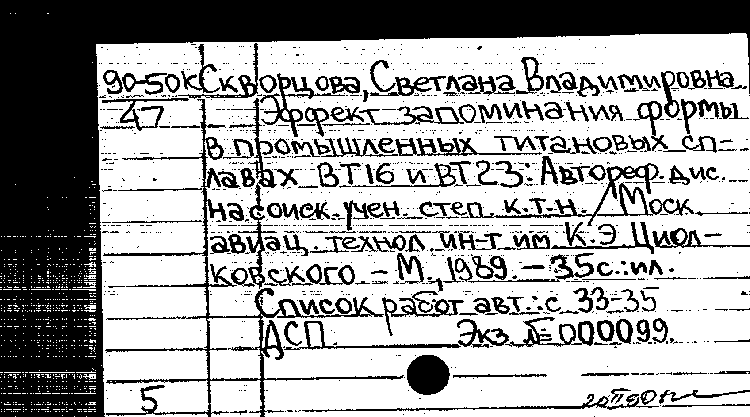 90-50к Скворцова, Светлана Владимировна
47 Эффект запоминания формы
в промышленных титановых сп-
лавах ВТ16 и ВТ23: Автореф. дис.
на соиск. учен. степ. к.т.н. / Моск.
авиац. технол. ин-т им. К.Э. Циол-
ковского. - М., 1989. - 35с.: ил.
Список работ авт.: с. 33-35
ДСП. Экз. № 000099.
5